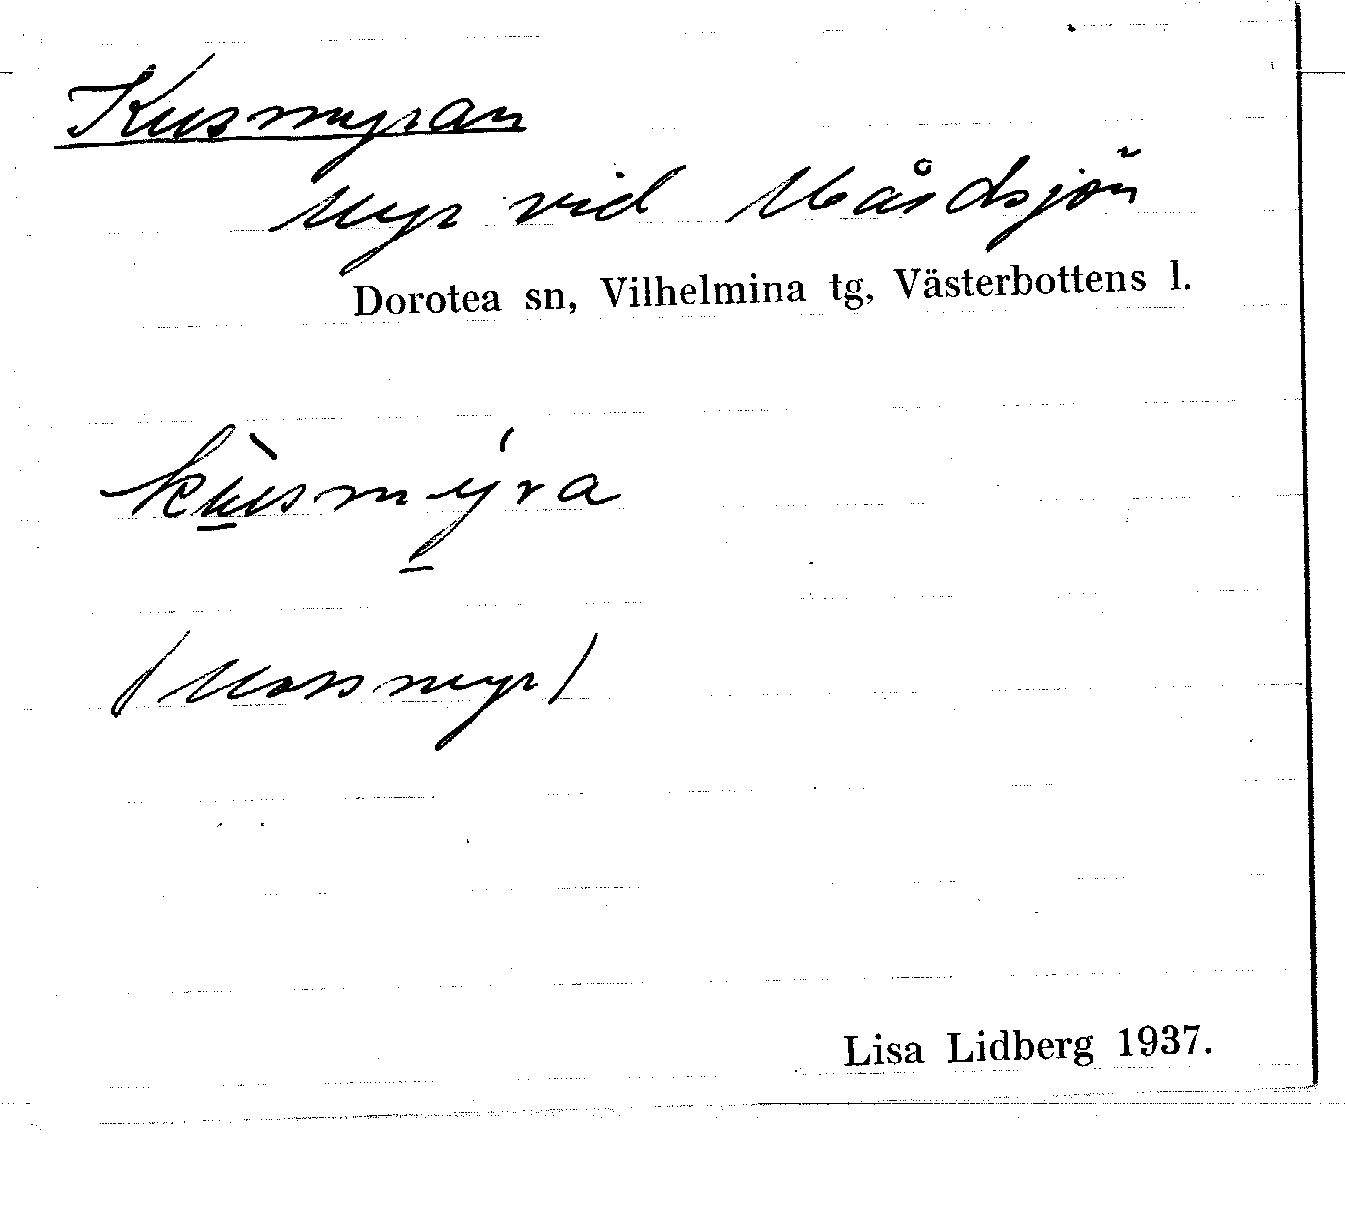 Kusmyran
Myr vid Mårdsjön
Dorotea sn, Vilhelmina tg, Västerbottens l.
kùsmýra
(Mossmyr)
Lisa Lidberg 1937.